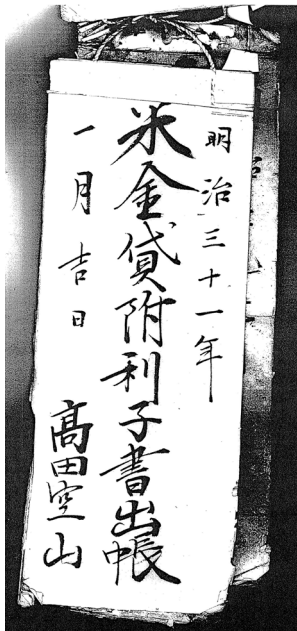 明治三十一年
米金貸附利子書出帳
一月吉日
髙田空山